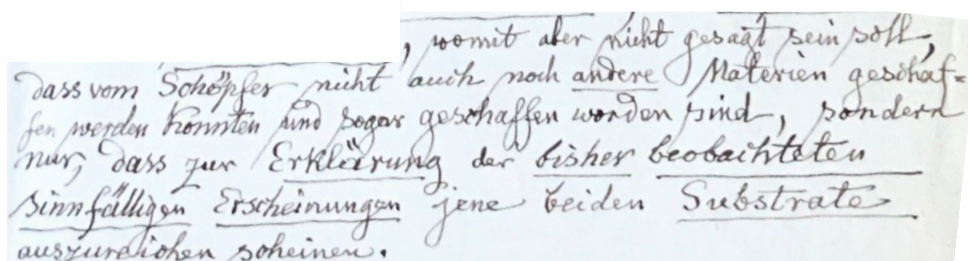 , womit aber nicht gesagt sein soll,
dass vom Schöpfer nicht auch noch andere Materien geschaf=
fen werden konnten und sogar geschaffen worden sind, sondern
nur, dass zur Erklärung der bisher beobachteten
sinnfälligen Erscheinungen jene beiden Substrate
auszureichen scheinen.